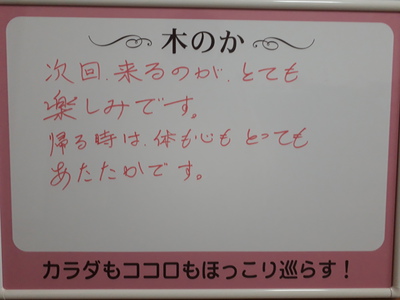 木のか
次回、来るのが、とても
楽しみです。
帰る時は、体も心もとっても
あたたかです。
カラダもココロもほっこり巡らす！